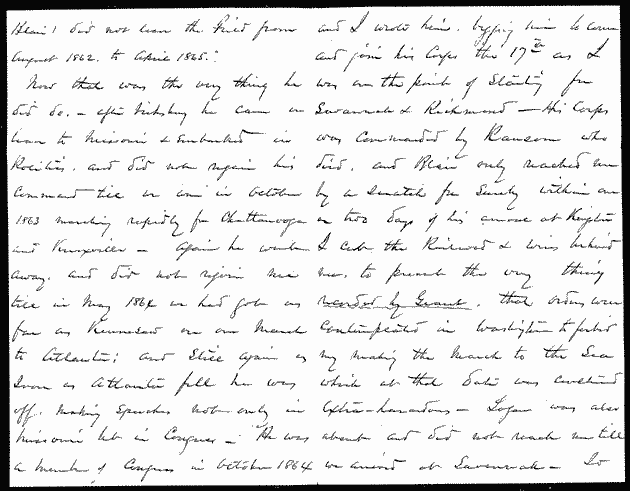 Blair! did not leave the Field from
August 1862. to April 1865."
Now that was the very thing he
did do. - after Vicksburg he came on
leave to Missouri & embarked in
Politics. and did not regain his
Command till we were in October
1863 marching rapidly for Chattanooga
and Knoxville - Again he went
away. and did not rejoin me
till in May 1864 we had got as
far as Kennesaw on our March
to Atlanta; and Still again as
Soon as Atlanta fell he was
off. making Speeches not only in
Missouri but in Congress - He was
a member of Congress in October 1864
and I wrote him. begging him to come
and join his Corps the 17th as I
was on the point of Starting for
Savannah & Richmond - His Corps
was Commanded by Ransom who
died. and Blair only reached me
by a scratch for Surely within one
or two days of his arrival at Kingston
I cut the Railroad & wires behind
me. to prevent the very thing
recorded by Grant. that orders were
Contemplated in Washington to forbid
my making the March to the Sea
which at that date was
extra-hazardous - Logan was also
absent and did not reach me till
we arrived at Savannah - So